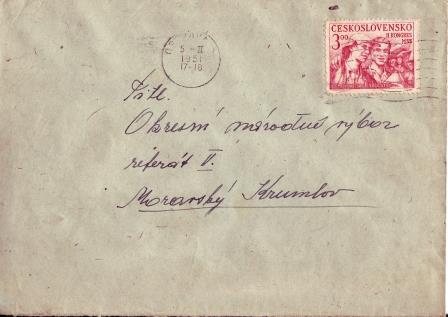 5 - II
1951
17-18
ČESKOSLOVENSKO
II KONGRES
3.00
Tit.
Okresní národní výbor
referát V.
Moravský Krumlov